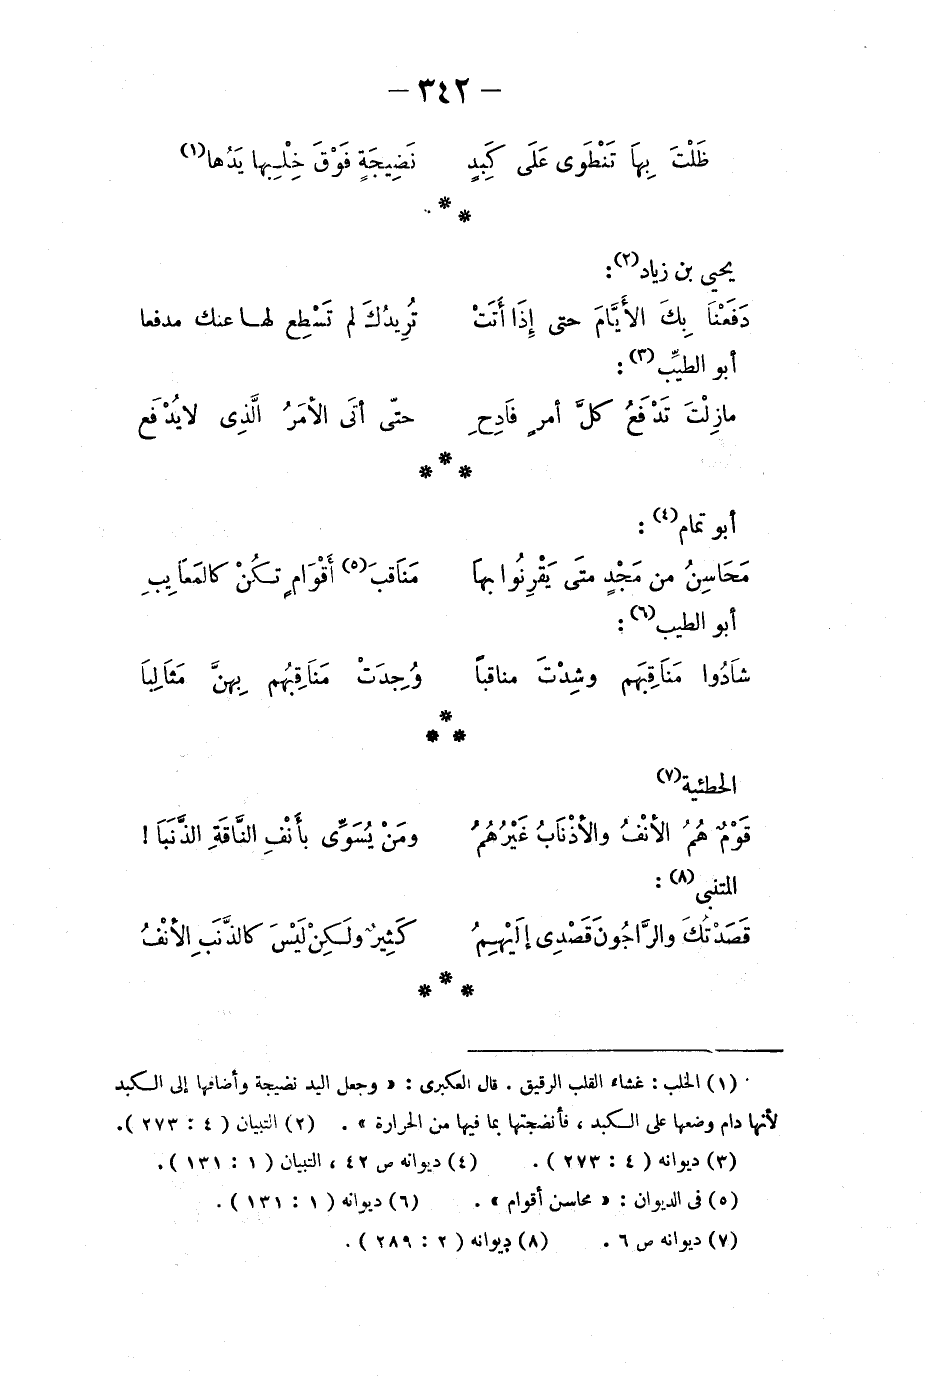 — ٣٤٢ —
ظَلْتَ بِهَا تَنْطَوِى عَلَى كَبِدٍ نَضِيجَةٍ فَوْقَ خِلْبِها يَدُها(١)
* *
يحيى بن زياد(٢):
دَفَعْنَا بِكَ الأَيَّامَ حتى إِذَا أَتَتْ تُرِيدُكَ لم تَسْطِع لها عنك مدفعا
أبو الطيِّب(٣):
مازِلْتَ تَدْفَعُ كلَّ أمرٍ فَادِحٍ حتّى أتَى الأمَرُ الَّذِى لايُدْفَع
* * *
أبو تمام(٤):
مَحَاسِنُ من مَجْدٍ متَى يَقْرِنُوا بهَا مَنَاقبَ(٥) أَقْوَامٍ تكُنْ كالمَعَايِبِ
أبو الطيب(٦):
شَادُوا مَنَاقِبَهم وشِدْتَ مناقباً وُجِدَتْ مَنَاقِبُهم بِهنَّ مَثَالِبَا
* * *
الحطئية(٧)
قَوْمٌ هُمُ الأنْفُ والأذْنَابُ غَيْرُهُمُ ومَنْ يُسَوِّى بأَنْفِ النَّاقَةِ الذَّنَبَا !
المتنبى(٨):
قَصَدْتُكَ والرَّاجُونَ قَصْدِى إلَيْهِمُ كَثِيرٌ ولَكِنْ لَيْسَ كالذَّنَبِ الأنْفُ
* * *
(١) الخلب : غشاء القلب الرقيق . قال العكبرى : « وجعل اليد نضيجة وأضافها إلى الكبد
لأنها دام وضعها على الكبد ، فأنضجتها بما فيها من الحرارة » . (٢) التبيان ( ٤ : ٢٧٣ ).
(٣) ديوانه ( ٤ : ٢٧٣ ) . (٤) ديوانه ص ٤٢ ، التبيان ( ١ : ١٣١ ).
(٥) فى الديوان : « محاسن أقوام » . (٦) ديوانه ( ١ : ١٣١ ) .
(٧) ديوانه ص ٦ . (٨) ديوانه ( ٢ : ٢٨٩ ) .